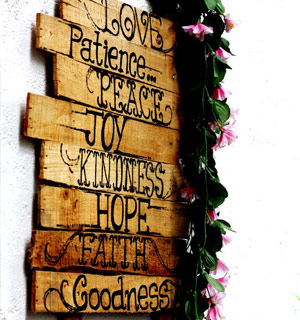 LOVE
Patience...
PEACE
JOY
KINDNESS
HOPE
FAITH
Goodness